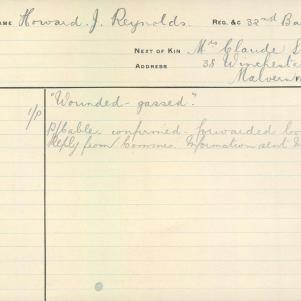 AME Howard. J. Reynolds. REG. &C 32nd Ba
NEXT OF KIN Mrs Claude
ADDRESS 38 Winchest
Malvern
1/P "Wounded - gassed."
P/Cable confirmed - forwarded
Reply from Commsr. Information sent